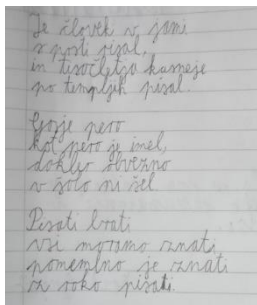 Je človek v jami
s prsti risal,
in tisočletja kasneje
po templjih pisal.
Gosje pero
kot pero je imel,
dokler obvezno
v šolo ni šel.
Pisati brati
vsi moramo znati,
pomembno je znati
za roko pisati.